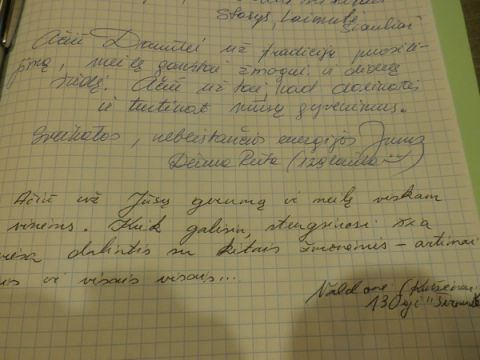 Stasys, Laimutė
Šiauliai
Ačiū Danutei už tradicijų puoselė-
jimą, meilę gamtai žmogui ir dievų
žodį. Ačiū už tai, kad dalinatės
ir turtinat mūsų gyvenimus.
Sveikatos, nebeišsenkančios energijos Jums
Deima Rūta
Ačiū už Jūsų gerumą ir meilę viskam
visiems. Kiek galėsiu, stengsiuosi
dalintis su kitais žmonėmis – artimai
ir visais visais...
Valdonė